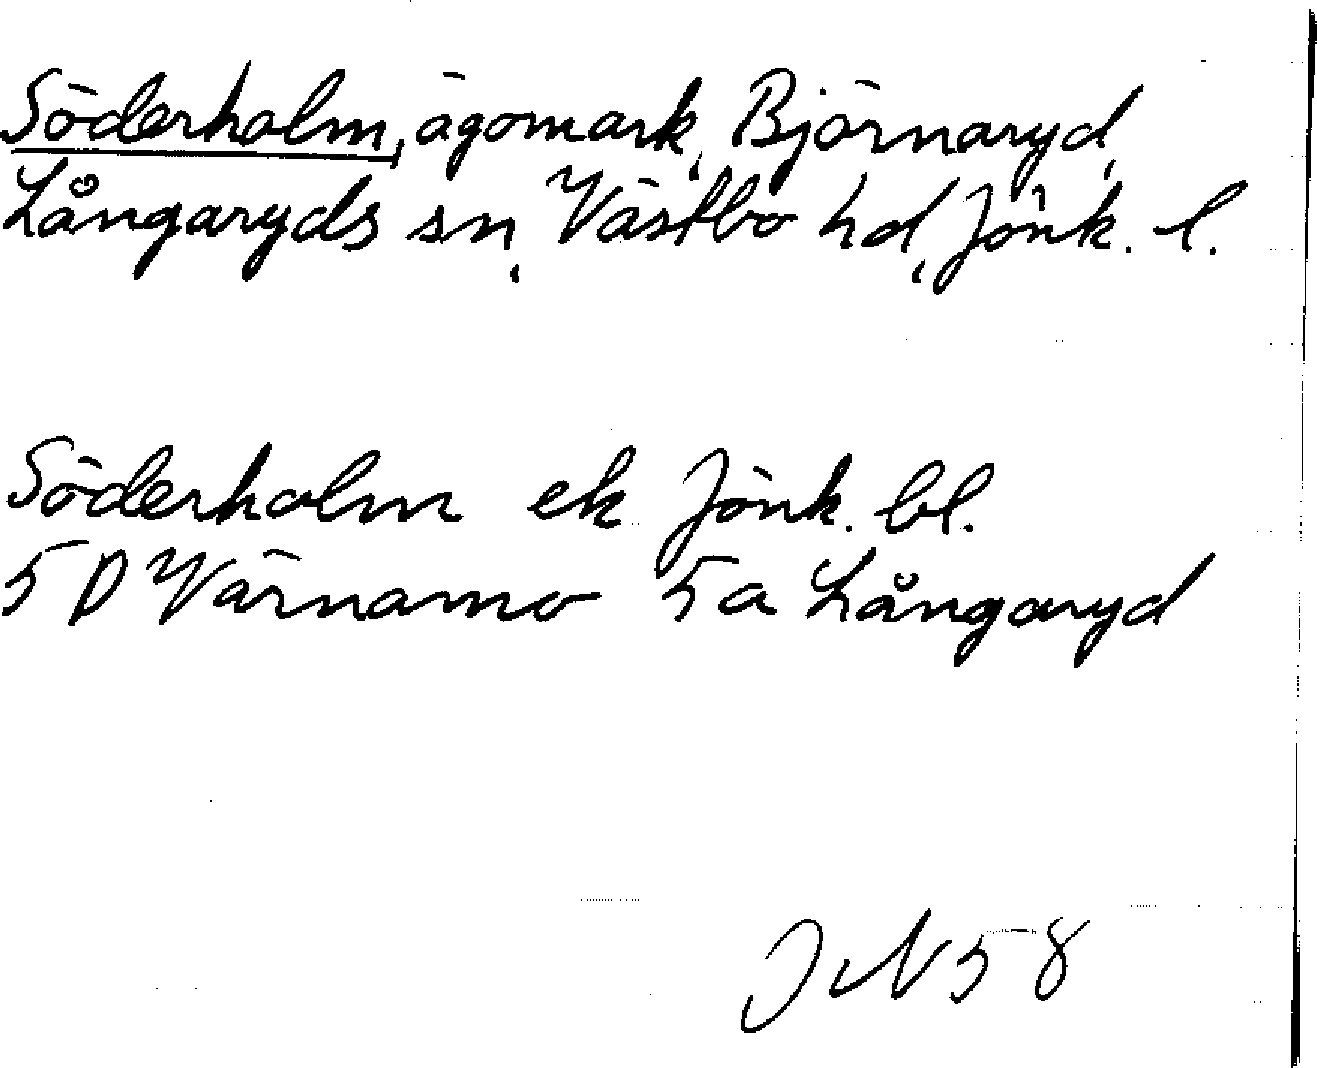 Söderholm, ägomark, Björnaryd,
Långaryds sn, Västbo hd, Jönk. l.
Söderholm ek Jönk. bl.
5 D Värnamo 5a Långaryd
JN 58